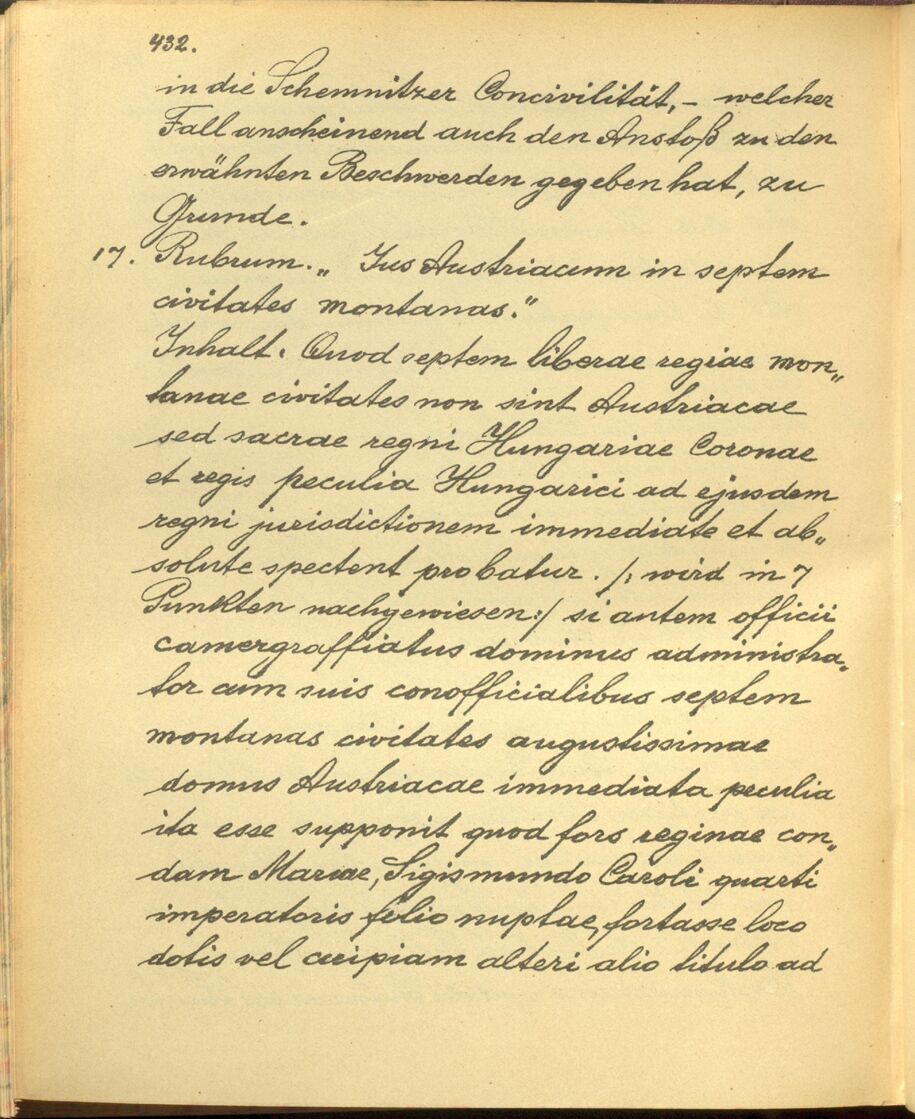 432.
in die Schemnitzer Concivilität, – welcher
Fall anscheinend auch den Anstoß zu den
erwähnten Beschwerden gegeben hat, zu
Grunde.
17. Rubrum. „ Jus Austriacum in septem
civitates montanas.“
Inhalt. Quod septem liberae regiae mon„
tanae civitates non sint Austriacae
sed sacrae regni Hungariae Coronae
et regis peculia Hungarici ad ejusdem
regni jurisdictionem immediate et ab„
solute spectent probatur. /: wird in 7
Punkten nachgewiesen:/ si autem officii
camergraffiatus dominus administra„
tor cum suis conofficialibus septem
montanas civitates augustissimae
domus Austriacae immediata peculia
ita esse supponit quod fors reginae con„
dam Mariae, Sigismundo Caroli quarti
imperatoris filio nuptae, fortasse loco
dotis vel cuipiam alteri alio titulo ad